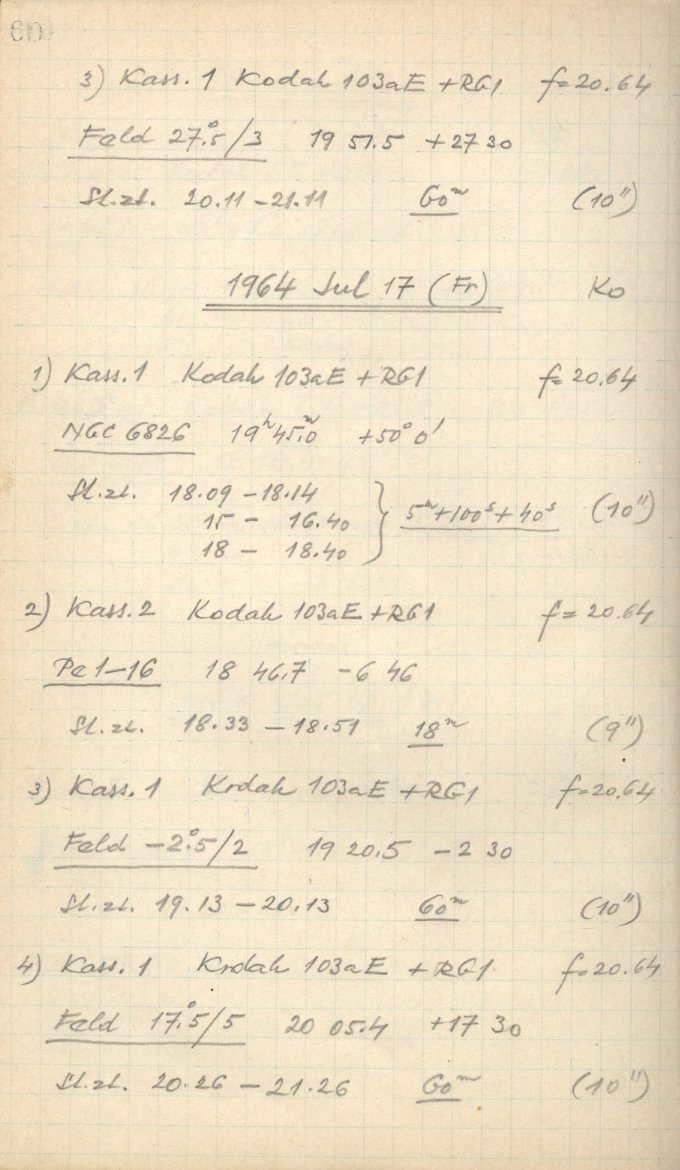 60
3) Kass. 1 Kodak 103aE + RG1 f=20.64
Feld 27°.5/3 19 57.5 +27 30
St.zt. 20.11 – 21.11 60ᵐ (10")
1964 Jul 17 (Fr) Ko
1) Kass. 1 Kodak 103aE + RG1 f=20.64
NGC 6826 19ʰ45ᵐ.0 +50° 0'
St.zt. 18.09 – 18.14
15 – 16.40 } 5ᵐ+100ˢ+40ˢ (10")
18 – 18.40
2) Kass. 2 Kodak 103aE + RG1 f=20.64
Pe 1–16 18 46.7 -6 46
St.zt. 18.33 – 18.51 18ᵐ (9")
3) Kass. 1 Kodak 103aE + RG1 f=20.64
Feld –2°.5/2 19 20.5 –2 30
St.zt. 19.13 – 20.13 60ᵐ (10")
4) Kass. 1 Kodak 103aE + RG1 f=20.64
Feld 17°.5/5 20 05.4 +17 30
St.zt. 20.26 – 21.26 60ᵐ (10")